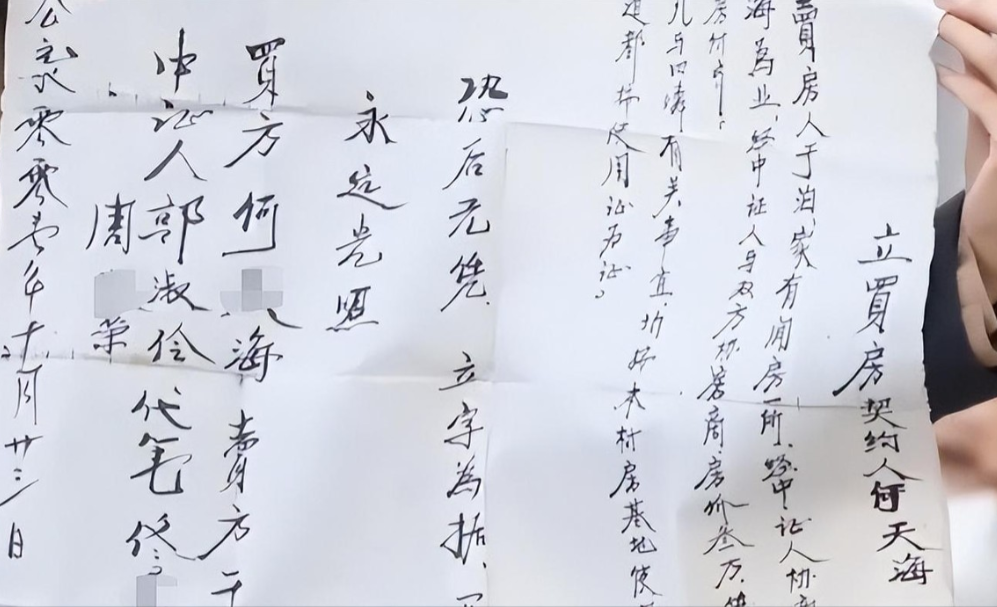 立買房契约人何天海
買房人于泊、家有闲房一所、经中证人协
海為业、经中证人与双方协商、房价叁万、
房付
儿与四隣有关事宜、均按本村房基地使
道都按使用证为证。
恐后无凭. 立字為据.
永远光照
買方何 海 賣方于
中证人郭淑伶代笔修
周 荣
公 零零壹年十月廿三日